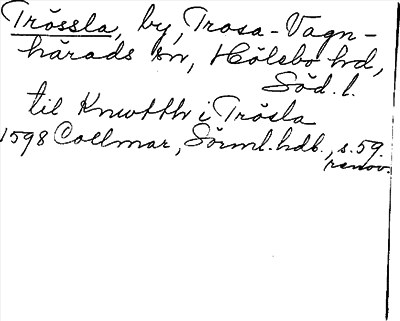 Trössla, by, Trosa-Vagn-
härads sn, Hölebo hd,
Söd. l.
til Knwtth i Trösla
1598 Collmar, Sörml. hdb., s. 59.
renov.